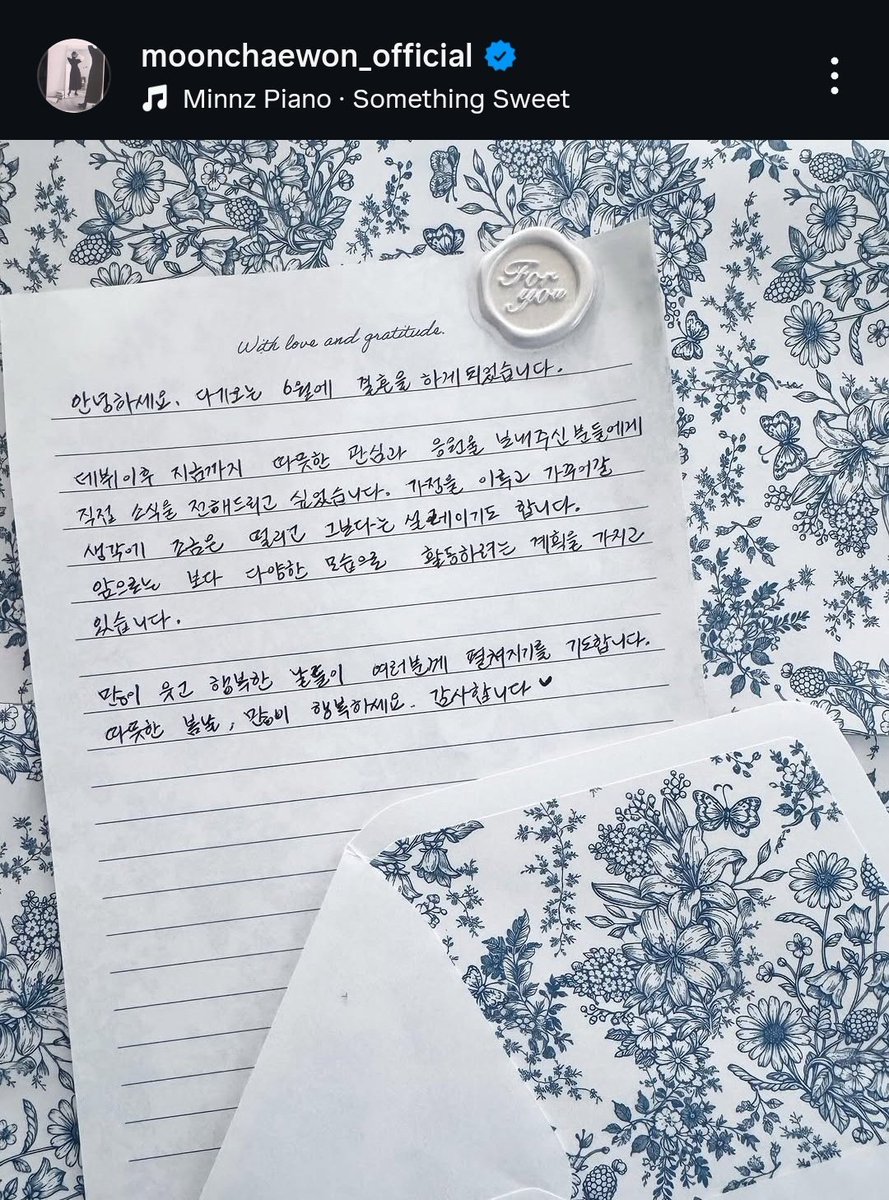 moonchaewon_official
Minnz Piano · Something Sweet
For
you
With love and gratitude.
안녕하세요. 다가오는 6월에 결혼을 하게 되었습니다.
데뷔 이후 지금까지 따뜻한 관심과 응원을 보내주신 분들에게
직접 소식을 전해드리고 싶었습니다. 가정을 이루고 가꾸어갈
생각에 조금은 떨리고 그보다는 설레이기도 합니다.
앞으로는 보다 다양한 모습으로 활동하려는 계획을 가지고
있습니다.
많이 웃고 행복한 날들이 여러분께 펼쳐지기를 기도합니다.
따뜻한 봄날, 많이 행복하세요. 감사합니다 ♥